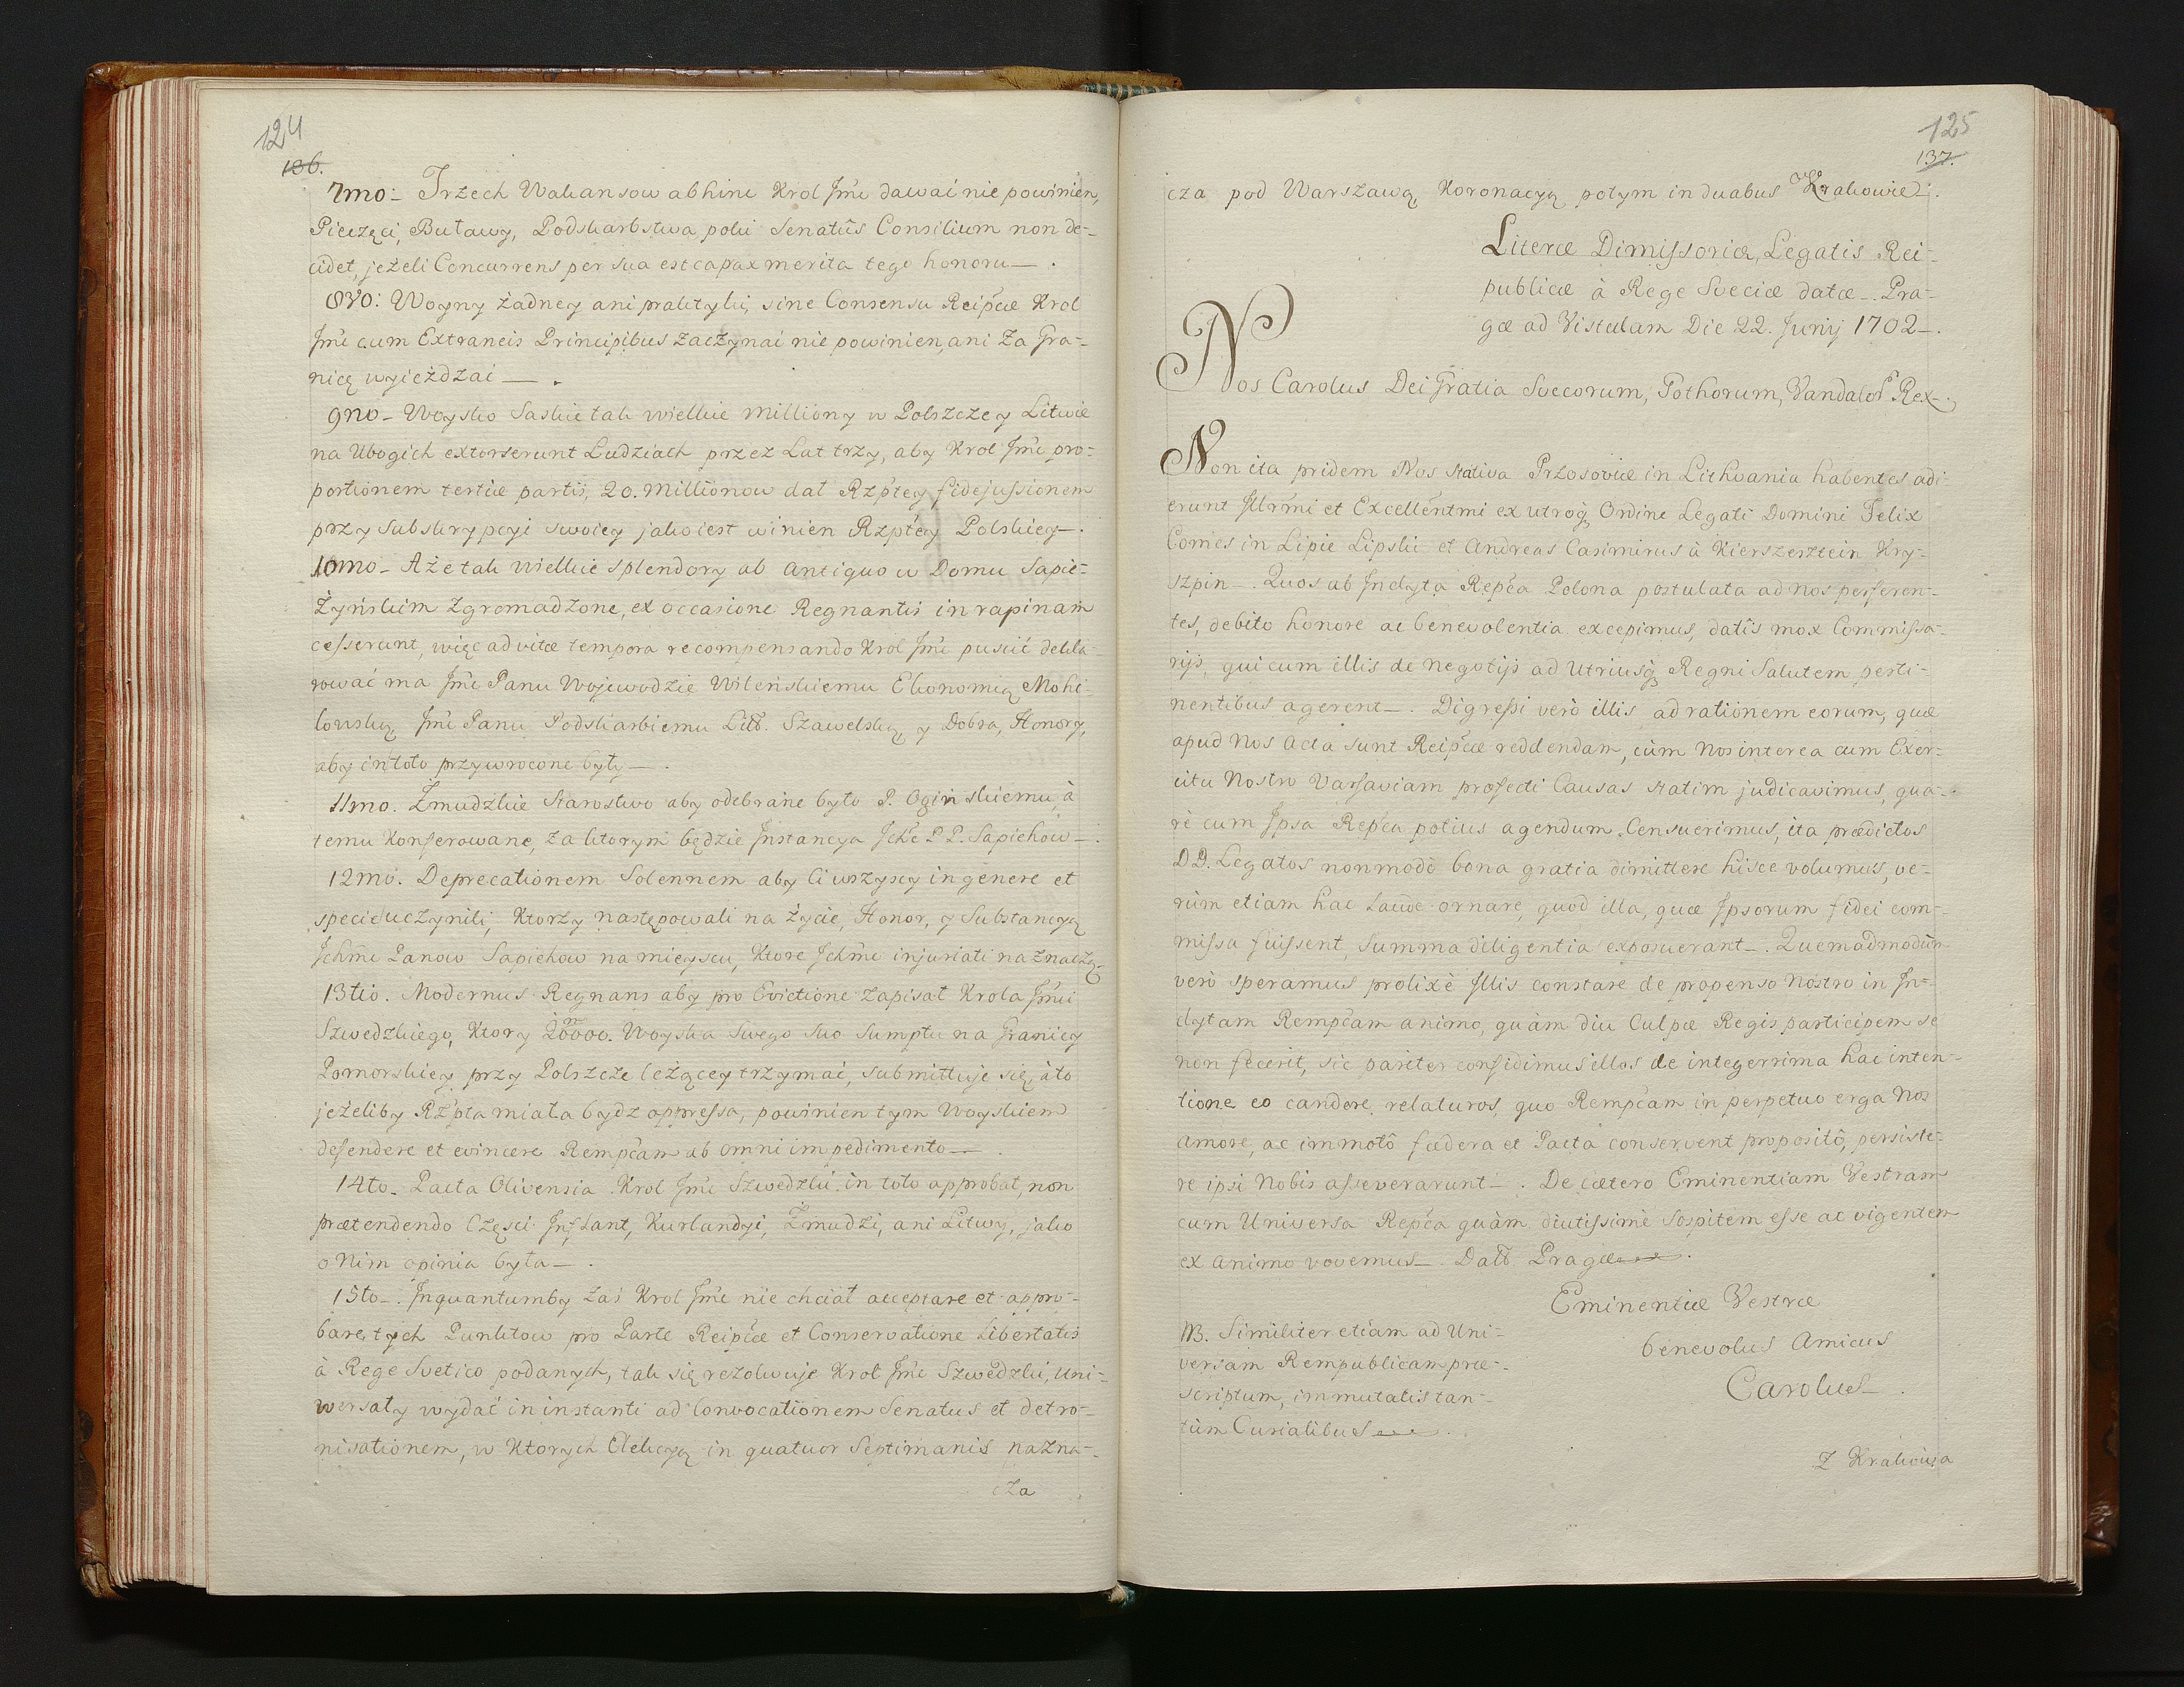 124
136.
7mo_ Trzech Wakansow abhinc Krol Jmc dawać nie powinien,
Pieczęci, Buławy, Podskarbstwa, poki Senatûs Consilium non de-
cidet, jeżeli Concurrens per sua est capax merita tego honoru_.
8vo: Woyny żadney ani praktyki, sine Consensu Reipcæ Krol
Jmc cum Extraneis Principibus zaczynać nie powinien, ani za Gra-
nicę wyieżdzać_.
9no_ Woysko Saskie tak wielkie milliony w Polszcze y Litwie
na Ubogich extorserunt Ludziach przez Lat trzy, aby Krol Jmc pro-
portionem tertiæ partis, 20. millionow dał Rzptey fidejussionem
przy subskrypcyi swoiey jako iest winien Rzptey Polskiey_.
10mo_ Aże tak wielkie splendory ab antiquo w Domu Sapie-
żyńskim zgromadzone, ex occasione Regnantis in rapinam
cesserunt, więc ad vitæ tempora recompensando Krol Jmc puscić dekla-
rować ma Jmc Panu Wojewodzie Wileńskiemu Ekonomią Mohi-
lowską, Jmc Panu Podskarbiemu Litt. Szawelską, y Dobra, Honory,
aby in toto przywrocone były_.
11mo. Żmudzkie Starostwo aby odebrane było P. Ogińskiemu, à
temu konferowane, za ktorym będzie Instancya Ichc P.P. Sapiehow_.
12mo. Deprecationem Solennem aby ci wszyscy in genere et
specie uczynili, ktorzy następowali na życie, Honor, y Substancyą
Ichmc Panow Sapiehow na mieyscu, ktore Ichmc injuriati naznaczą_
13tio. Modernus Regnans aby pro Evictione zapisał Krola Jmci
Szwedzkiego, ktory 20000. Woyska swego suo sumptu na Granicy
Pomorskiey przy Polszcze leżącey trzymać, submittuje się, à to
jeżeliby Rzpta miała bydz oppressa, powinien tym Woyskiem
defendere et evincere Rempcam ab omni impedimento_.
14to_ Pacta Olivensia Krol Jmc Szwedzki in toto approbat, non
prætendendo Części Inflant, Kurlandyi, Żmudzi, ani Litwy, jako
o Nim opinia była_.
15to_. Inquantumby zaś Krol Jmc nie chciał acceptare et appro-
bare tych Punktow pro Parte Reipcæ et Conservatione Libertatis
à Rege Svetico podanych, tak się rezolwuje Krol Jmc Szwedzki, uni-
wersały wydać in instanti ad Convocationem Senatus et detro-
nisationem, w ktorych Elekcyą in quatuor Septimanis nazna-
cza
125
137.
cza pod Warszawą, Koronacyą potym in duabus Krakowie.
Literæ Dimissoriæ, Legatis Rei-
publicæ à Rege Sveciæ datæ_. Pra-
gæ ad Vistulam Die 22. Junij 1702_.
Nos Carolus Dei Gratia Svecorum, Gothorum, Vandalor Rex_.
Non ita pridem Nos stativa Przosoviæ in Lithvania habentes adi-
erunt Illrmi et Excellentmi ex utroq Ordine Legati Domini Felix
Comes in Lipie Lipski et Andreas Casimirus à Kierszensztein Kry-
szpin_. Quos ab Inclyta Repca Polona postulata ad nos perferen-
tes, debito honore ac benevolentia excepimus, datîs mox Commissa-
rijs, qui cum illis de negotijs ad Utriusq Regni Salutem perti-
nentibus agerent_. Digressi verò illis ad rationem eorum, quæ
apud Nos acta sunt Reipcæ reddendam, cùm Nos interea cum Exer-
citu Nostro Varsaviam profecti Causas statim judicavimus, qua-
re cum Ipsa Repca potius agendum Censuerimus, ita prædictos
DD. Legatos non modò bona gratia dimittere hisce volumus, ve-
rùm etiam hac Laude ornare, quod illa, quæ Ipsorum fidei com-
missa fuissent, summa diligentia exposuerant_. Quemadmodùm
verò speramus prolixè Illis constare de propenso Nostro in In-
clytam Rempcam animo, quàm diu Culpæ Regis participem se
non fecerit, sic pariter confidimus illos de integerrima hac inten-
tione eo candore relaturos, quo Rempcam in perpetuo erga Nos
amore, ac immotô fœdera et Pacta conservent propositô, persiste-
re ipsi Nobis asseverarunt_. De cætero Eminentiam Vestram
cum Universa Repca quàm diutissimè sospitem esse ac vigentem
ex animo vovemus_. Datt Pragæ
Eminentiæ Vestræ
benevolus Amicus
Carolus_.
NB. Similiter etiam ad Uni-
versam Rempublicam præ-
scriptum, immutatis tan-
tùm Curialibus
Z Krakowa